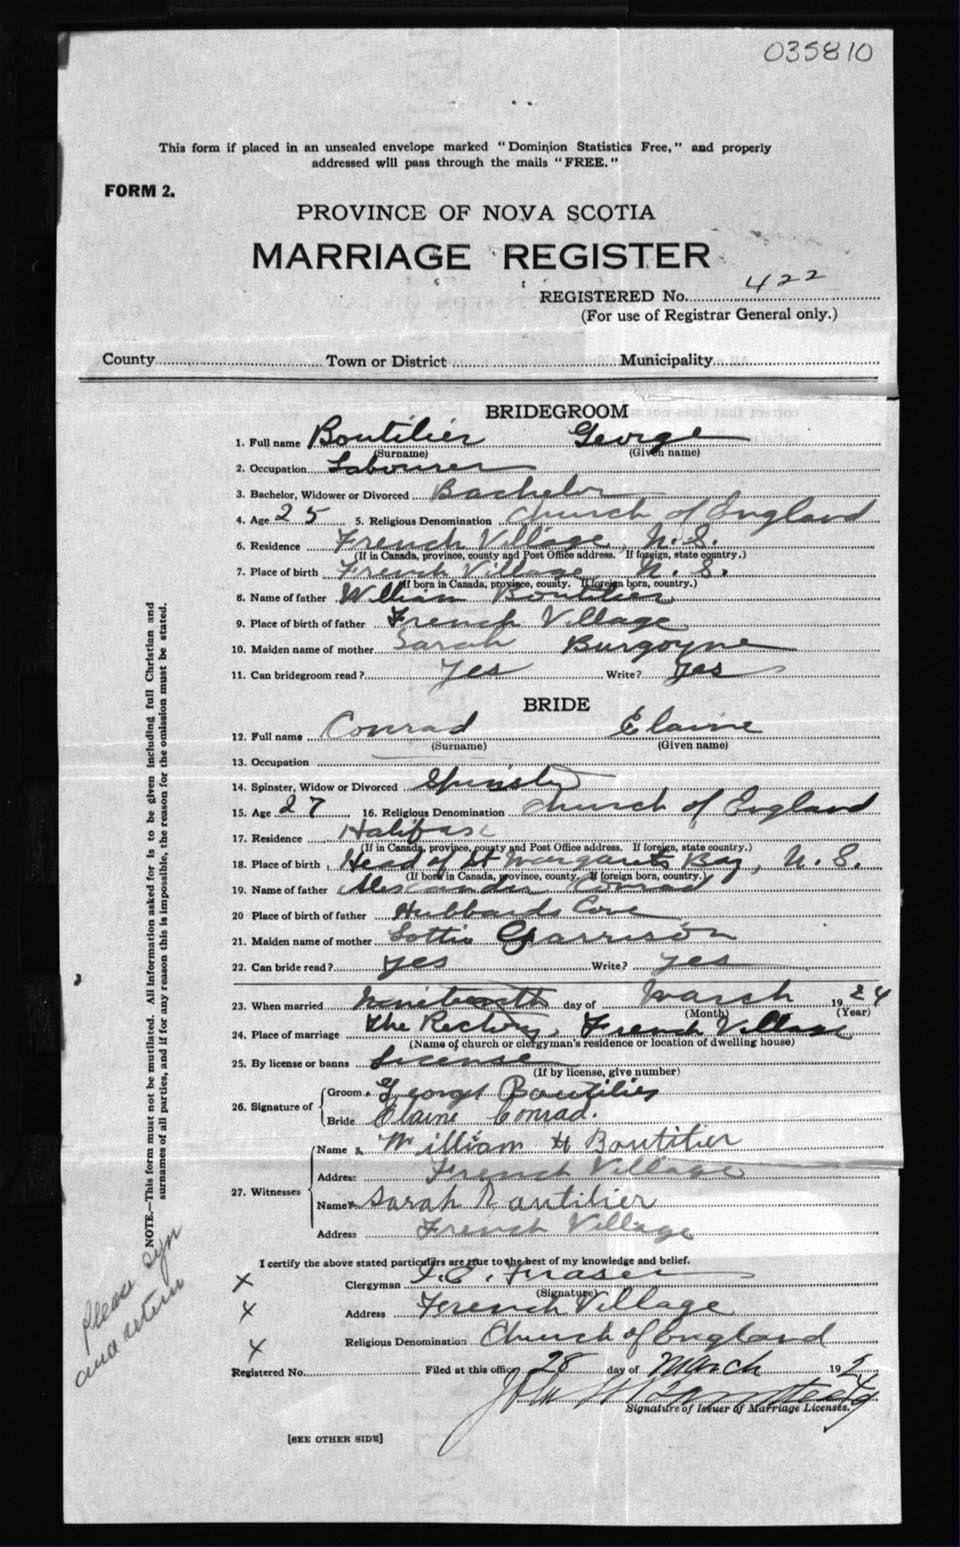 035810
This form if placed in an unsealed envelope marked "Dominion Statistics Free," and properly
addressed will pass through the mails "FREE."
FORM 2.
PROVINCE OF NOVA SCOTIA
MARRIAGE REGISTER
REGISTERED No. 422
(For use of Registrar General only.)
County Town or District Municipality
BRIDEGROOM
1. Full name Boutilier George
(Surname) (Given name)
2. Occupation Labourer
3. Bachelor, Widower or Divorced Bachelor
4. Age 25 5. Religious Denomination Church of England
6. Residence French Village, N.S.
(If in Canada, province, county and Post Office address. If foreign, state country.)
7. Place of birth French Village N.S.
(If born in Canada, province, county. If foreign born, country.)
8. Name of father William Boutilier
9. Place of birth of father French Village
10. Maiden name of mother Sarah Burgoyne
11. Can bridegroom read? Yes Write? Yes
BRIDE
12. Full name Conrad Elaine
(Surname) (Given name)
13. Occupation
14. Spinster, Widow or Divorced Spinster
15. Age 27 16. Religious Denomination Church of England
17. Residence Halifax
(If in Canada, province, county and Post Office address. If foreign, state country.)
18. Place of birth Head of St Margarets Bay, N.S.
(If born in Canada, province, county. If foreign born, country.)
19. Name of father Alexander Conrad
20 Place of birth of father Hubbards Cove
21. Maiden name of mother Lottie Garrison
22. Can bride read? yes Write? yes
23. When married Nineteenth day of March 1924
(Month) (Year)
24. Place of marriage The Rectory, French Village
(Name of church or clergyman's residence or location of dwelling house)
25. By license or banns License
(If by license, give number)
26. Signature of
Groom George Boutilier
Bride Elaine Conrad.
27. Witnesses
Name William H Boutilier
Address French Village
Name Sarah Boutilier
Address French Village
I certify the above stated particulars are true to the best of my knowledge and belief.
x Clergyman Fraser
(Signature)
x Address French Village
x Religious Denomination Church of England
Registered No. Filed at this office 28 day of March 1924
Signature of Issuer of Marriage Licenses.
[SEE OTHER SIDE]
NOTE.—This form must not be mutilated. All information asked for is to be given including full Christian and
surnames of all parties, and if for any reason this is impossible, the reason for the omission must be stated.
Please sign
and return